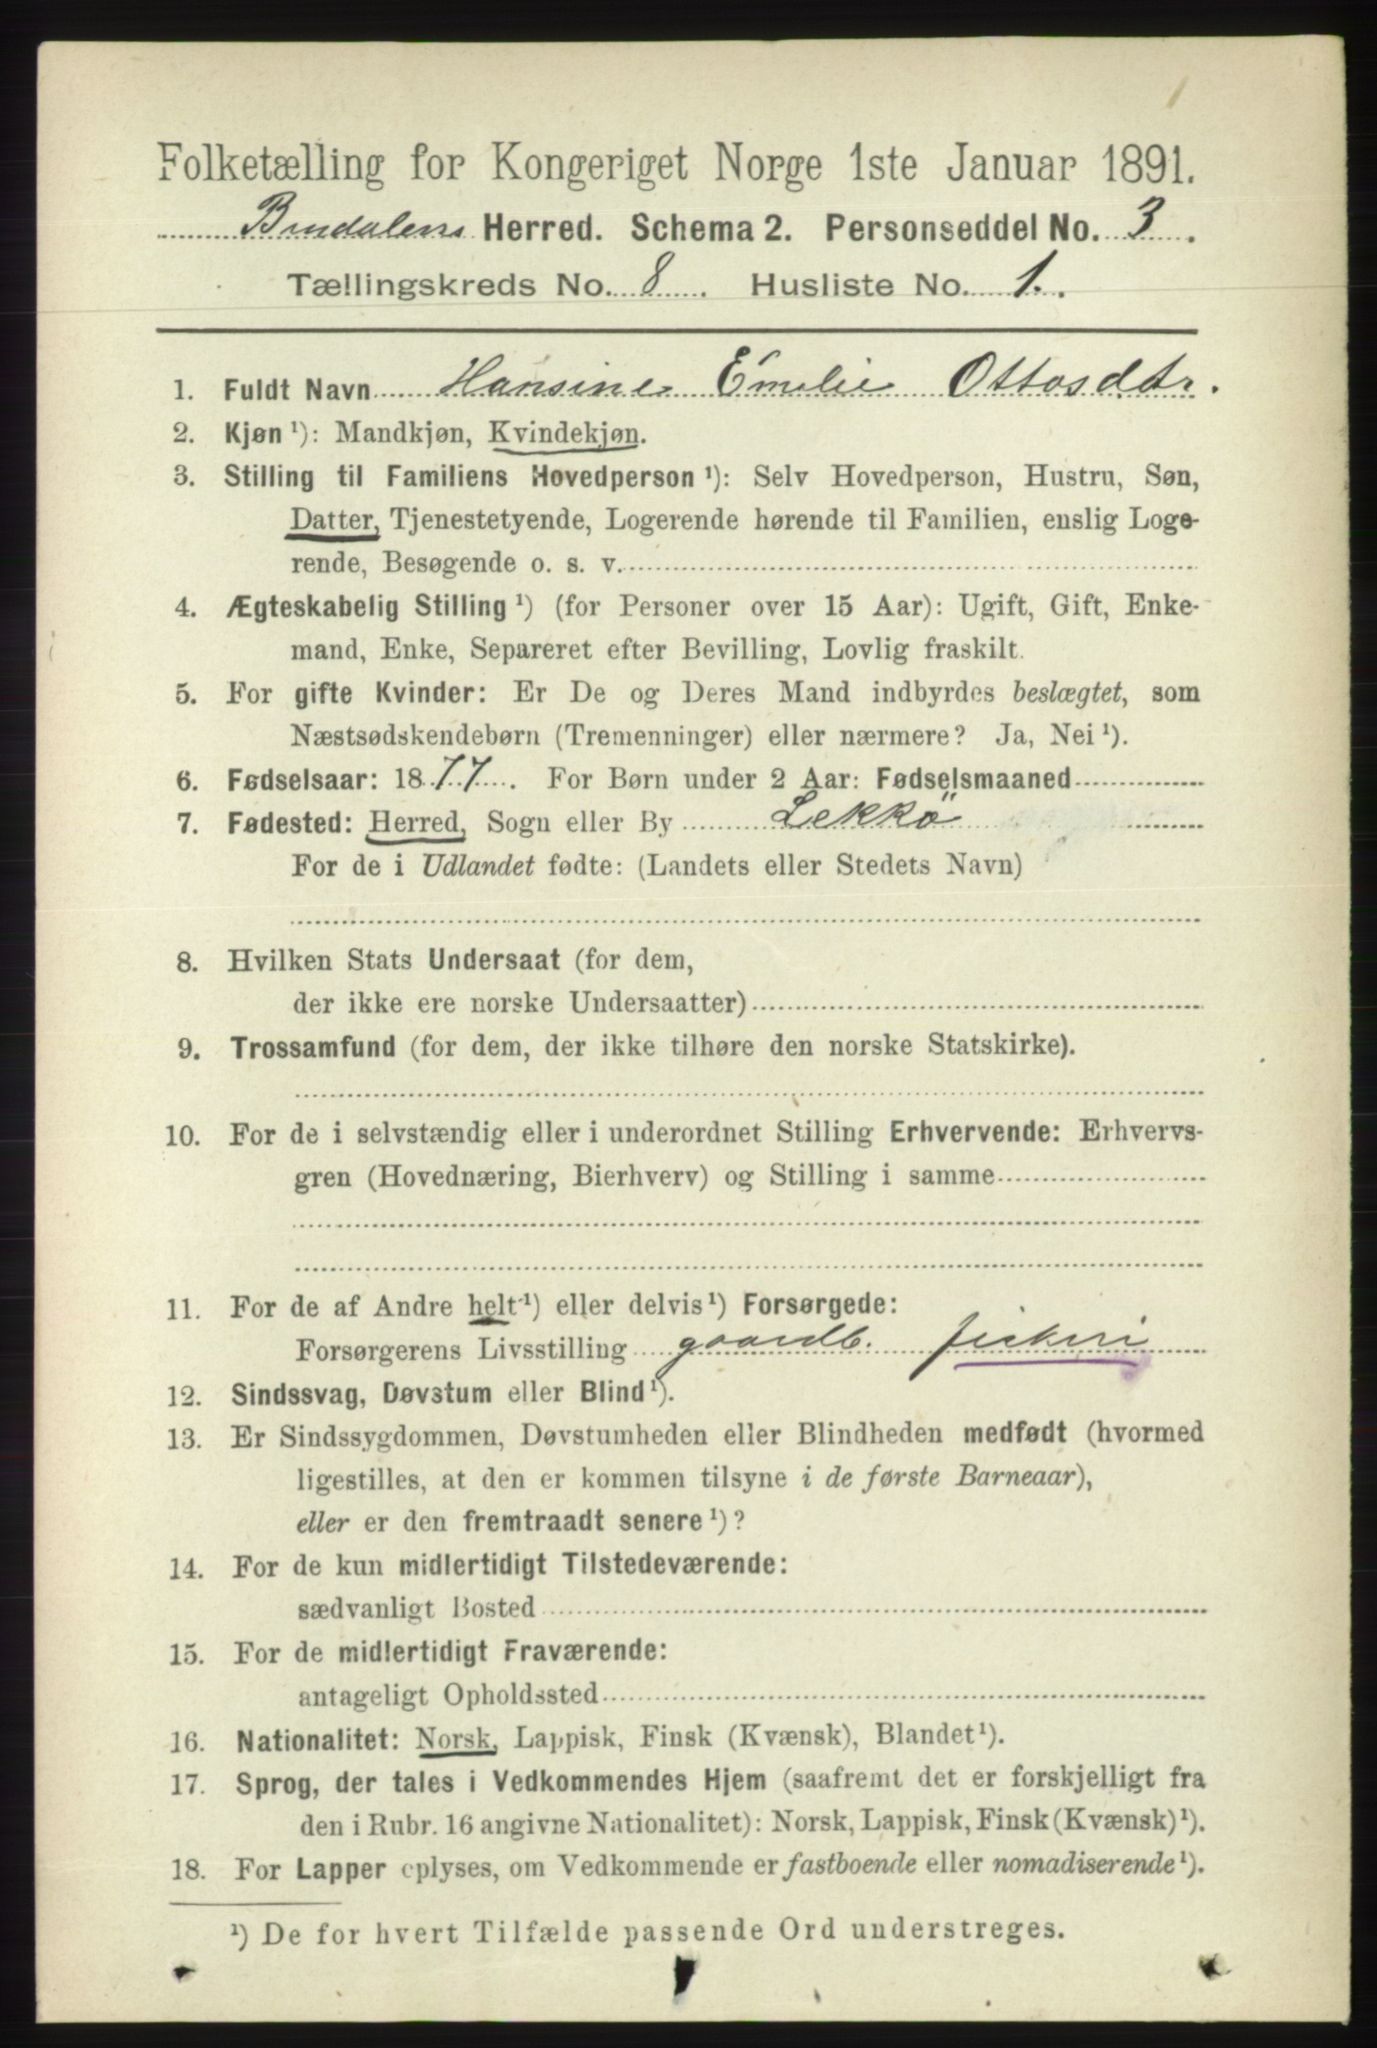 Folketælling for Kongeriget Norge 1ste Januar 1891.
Bindalens Herred. Schema 2. Personseddel No. 3.
Tællingskreds No. 8. Husliste No. 1.
1. Fuldt Navn Hansine Emelie Ottosdtr.
2. Kjøn ¹): Mandkjøn, Kvindekjøn.
3. Stilling til Familiens Hovedperson ¹): Selv Hovedperson, Hustru, Søn,
Datter, Tjenestetyende, Logerende hørende til Familien, enslig Loge-
rende, Besøgende o. s. v.
4. Ægteskabelig Stilling ¹) (for Personer over 15 Aar): Ugift, Gift, Enke-
mand, Enke, Separeret efter Bevilling, Lovlig fraskilt.
5. For gifte Kvinder: Er De og Deres Mand indbyrdes beslægtet, som
Næstsødskendebørn (Tremenninger) eller nærmere? Ja, Nei ¹).
6. Fødselsaar: 1877. For Børn under 2 Aar: Fødselsmaaned
7. Fødested: Herred, Sogn eller By Lekkö
For de i Udlandet fødte: (Landets eller Stedets Navn)
8. Hvilken Stats Undersaat (for dem,
der ikke ere norske Undersaatter)
9. Trossamfund (for dem, der ikke tilhøre den norske Statskirke).
10. For de i selvstændig eller i underordnet Stilling Erhvervende: Erhvervs-
gren (Hovednæring, Bierhverv) og Stilling i samme
11. For de af Andre helt ¹) eller delvis ¹) Forsørgede:
Forsørgerens Livsstilling gaardb. fiskeri
12. Sindssvag, Døvstum eller Blind ¹).
13. Er Sindssygdommen, Døvstumheden eller Blindheden medfødt (hvormed
ligestilles, at den er kommen tilsyne i de første Barneaar),
eller er den fremtraadt senere ¹)?
14. For de kun midlertidigt Tilstedeværende:
sædvanligt Bosted
15. For de midlertidigt Fraværende:
antageligt Opholdssted
16. Nationalitet: Norsk, Lappisk, Finsk (Kvænsk), Blandet ¹).
17. Sprog, der tales i Vedkommendes Hjem (saafremt det er forskjelligt fra
den i Rubr. 16 angivne Nationalitet): Norsk, Lappisk, Finsk (Kvænsk) ¹).
18. For Lapper oplyses, om Vedkommende er fastboende eller nomadiserende ¹).
¹) De for hvert Tilfælde passende Ord understreges.